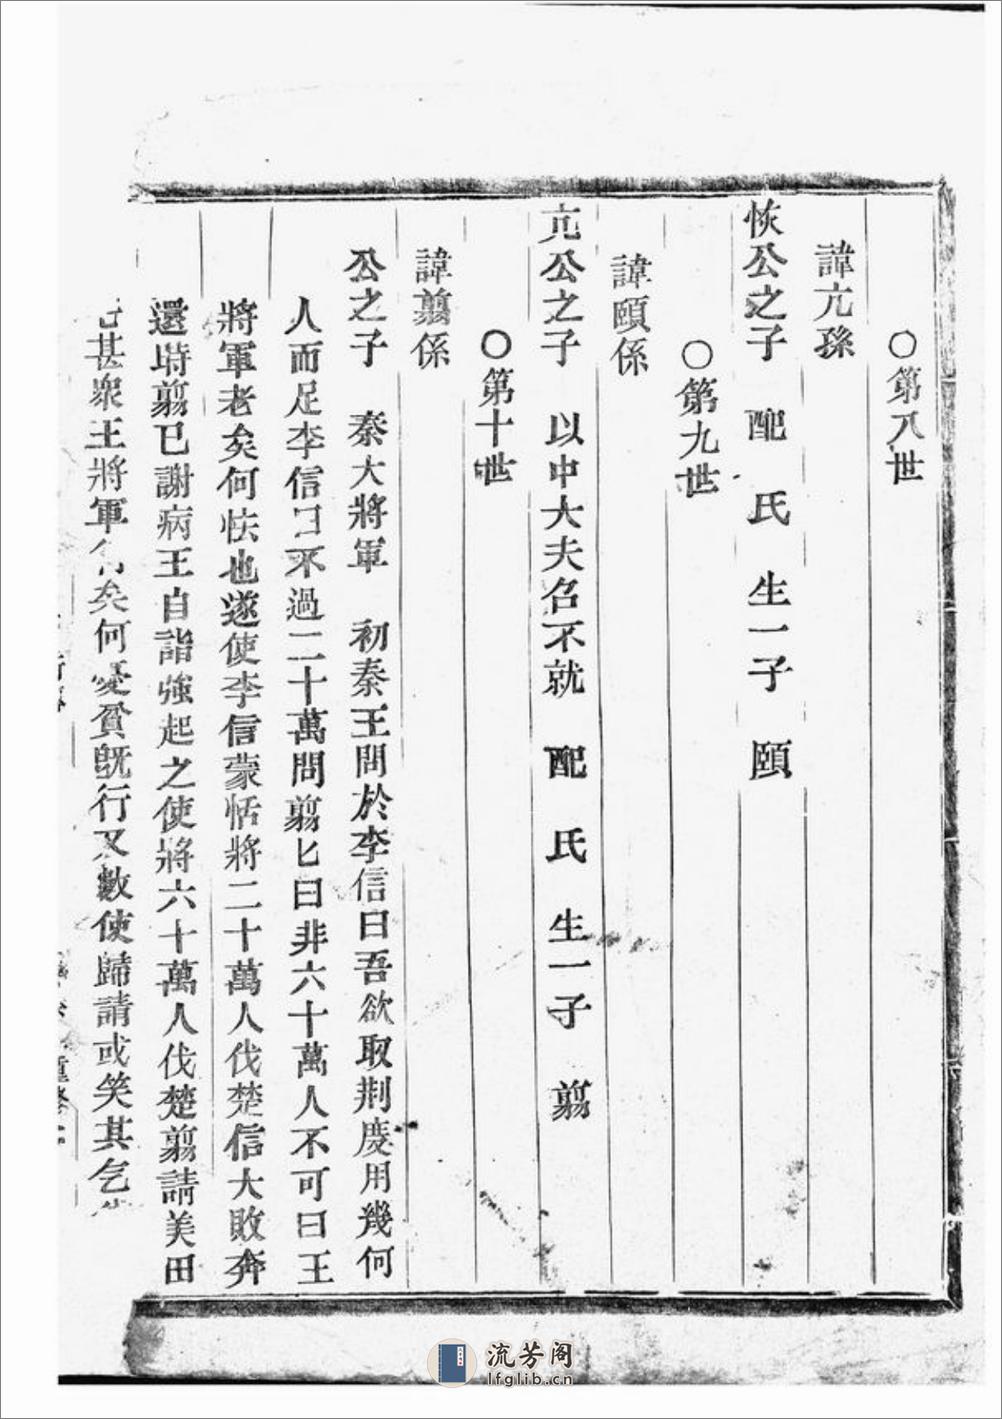 ○第八世
諱亢孫
恢公之子　配　氏　生一子　頤
○第九世
諱頤係
亢公之子　以中大夫召不就　配　氏　生一子　翦
○第十世
諱翦係
公之子　秦大將軍　初秦王問於李信曰吾欲取荆度用幾何
人而足李信曰不過二十萬問翦匕曰非六十萬人不可曰王
將軍老矣何怯也遂使李信蒙恬將二十萬人伐楚信大敗奔
還時翦已謝病王自詣強起之使將六十萬人伐楚翦請美田
甚衆王將軍行矣何憂貧既行又數使歸請或笑其乞
重修
流芳阁
lfglib.cn